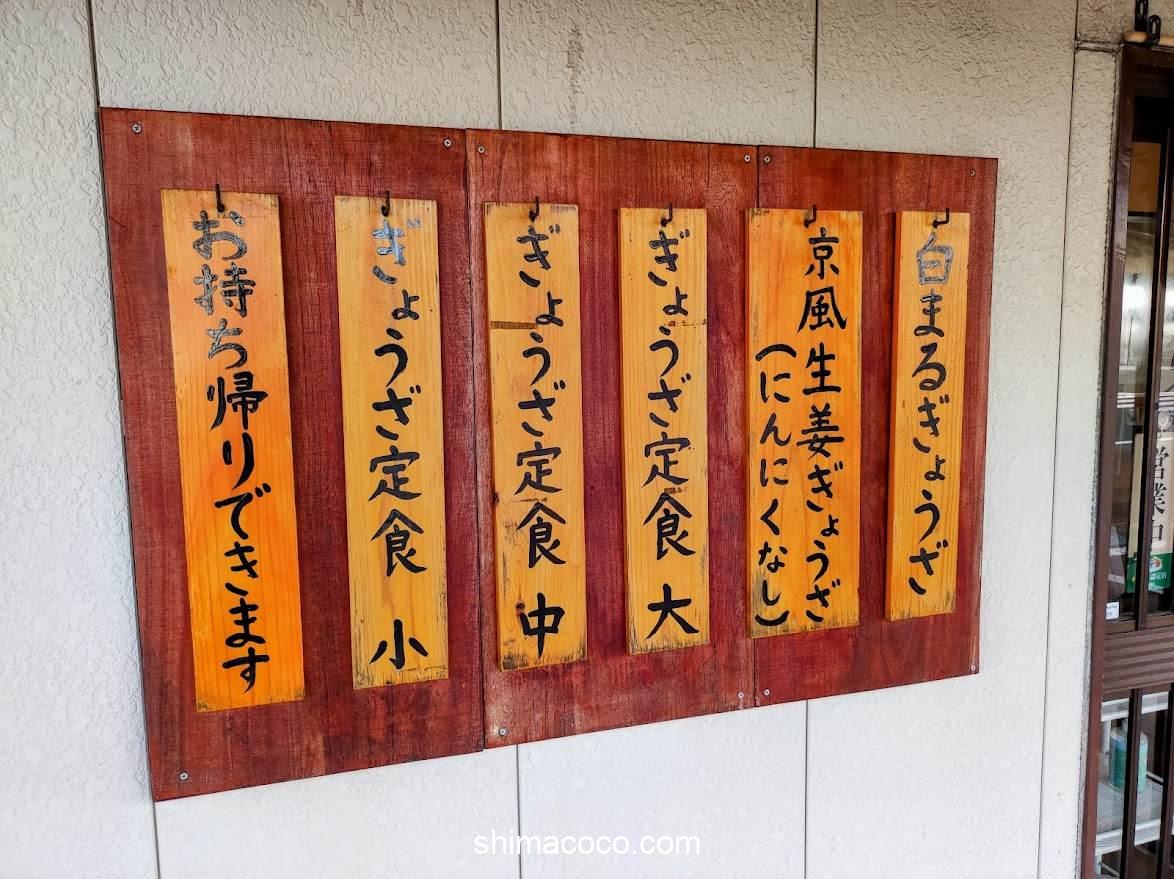 白まるぎょうざ
京風生姜ぎょうざ
(にんにくなし)
ぎょうざ定食 大
ぎょうざ定食 中
ぎょうざ定食 小
お持ち帰りできます
営業中
shimacoco.com